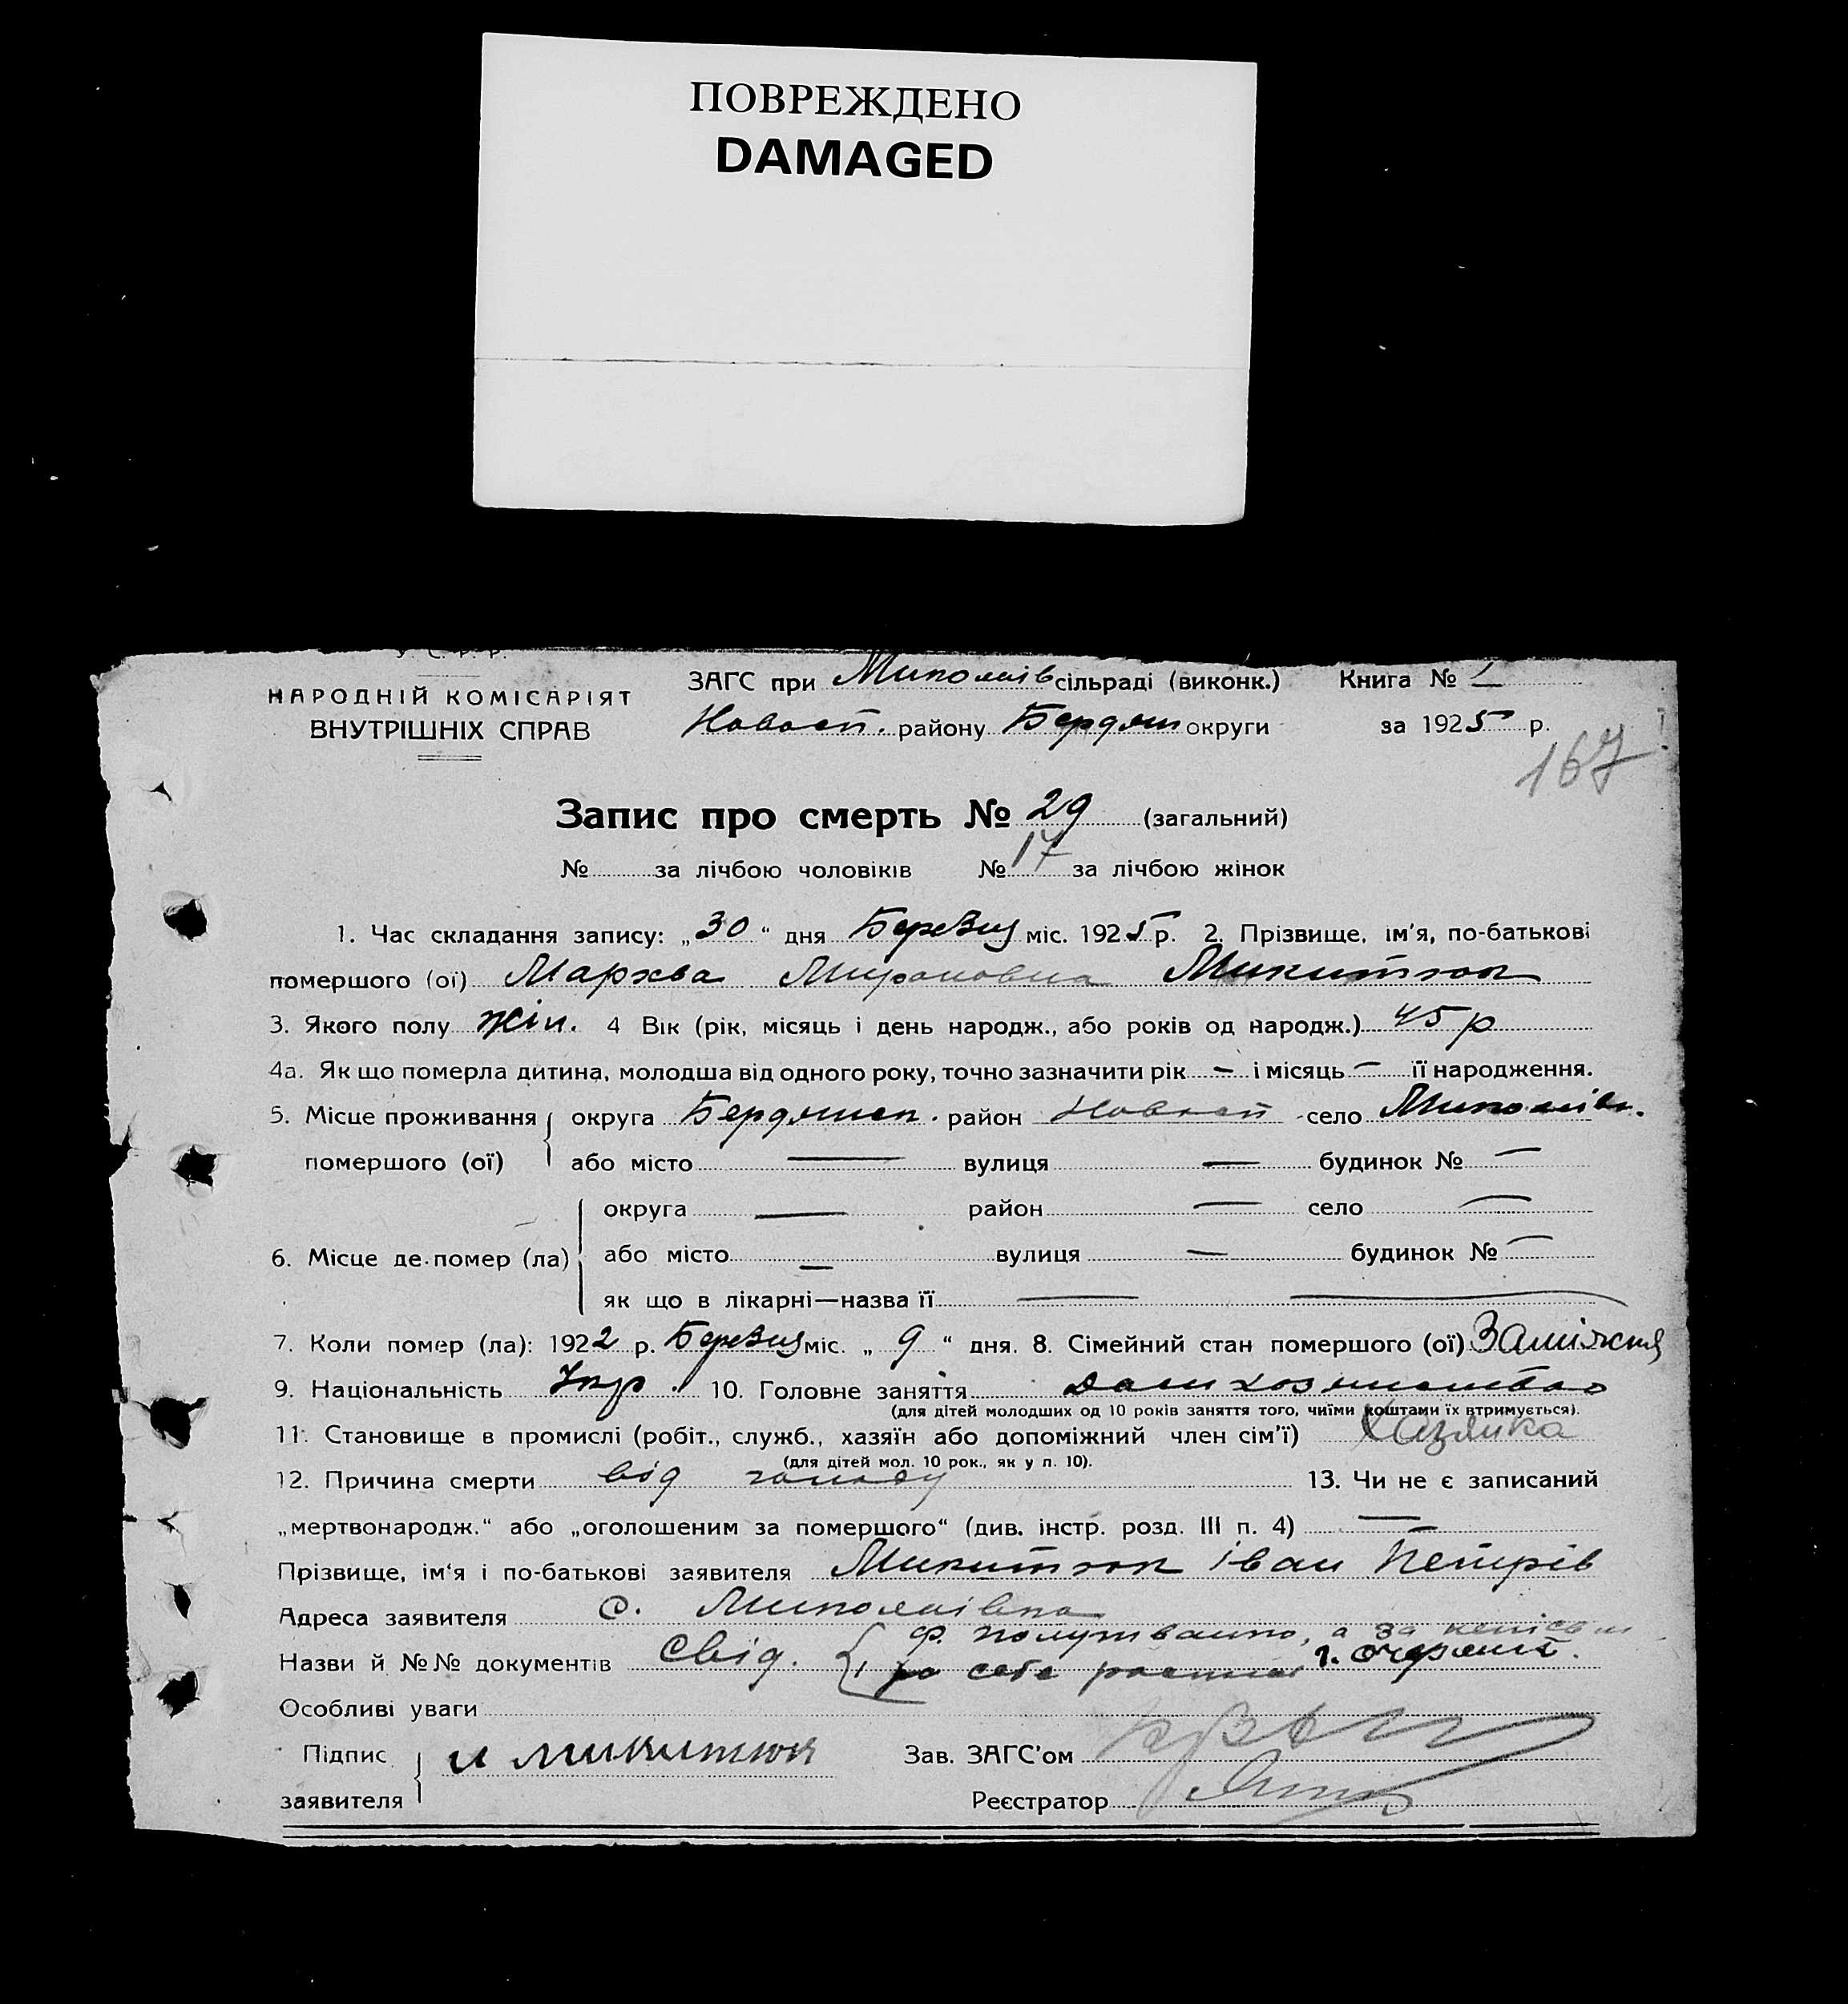 ПОВРЕЖДЕНО
DAMAGED
У. С. Р. Р.
НАРОДНІЙ КОМІСАРІЯТ
ВНУТРІШНІХ СПРАВ
ЗАГС при Миколаїв сільраді (виконк.) Книга № 1
Новосп. району Бердян округи за 1925 р.
167
Запис про смерть № 29 (загальний)
№ за лічбою чоловіків № 17 за лічбою жінок
1. Час складання запису: „30“ дня Березня міс. 1925 р. 2. Прізвище, ім'я, по-батькові
помершого (ої) Мархва Мироновна Микитюк
3. Якого полу жін. 4 Вік (рік, місяць і день народж., або років од народж.) 45 р
4а. Як що померла дитина, молодша від одного року, точно зазначити рік — і місяць — її народження.
5. Місце проживання округа Бердянск. район Новосп село Миколаївк.
помершого (ої) або місто — вулиця — будинок № —
округа — район — село —
6. Місце де помер (ла) або місто — вулиця — будинок № —
як що в лікарні—назва її —
7. Коли помер (ла): 1922 р. Березня міс. „9“ дня. 8. Сімейний стан помершого (ої) Заміжня
9. Національність Укр. 10. Головне заняття
(для дітей молодших од 10 років заняття того, чиїми коштами їх втримується).
11. Становище в промислі (робіт., служб., хазяїн або допоміжний член сім'ї) Хазяйка
(для дітей мол. 10 рок., як у п. 10).
12. Причина смерти від голоду 13. Чи не є записаний
„мертвонародж.“ або „оголошеним за помершого“ (див. інстр. розд. III п. 4) —
Прізвище, ім'я і по-батькові заявителя Микитюк Іван Петрів
Адреса заявителя с. Миколаївка
Назви й №№ документів Свід.
Особливі уваги
Підпис заявителя И Микитюк Зав. ЗАГС'ом
Реєстратор